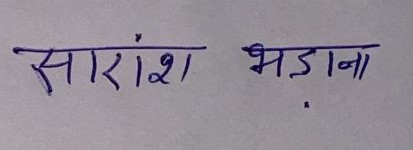 सारांश भड़ाना